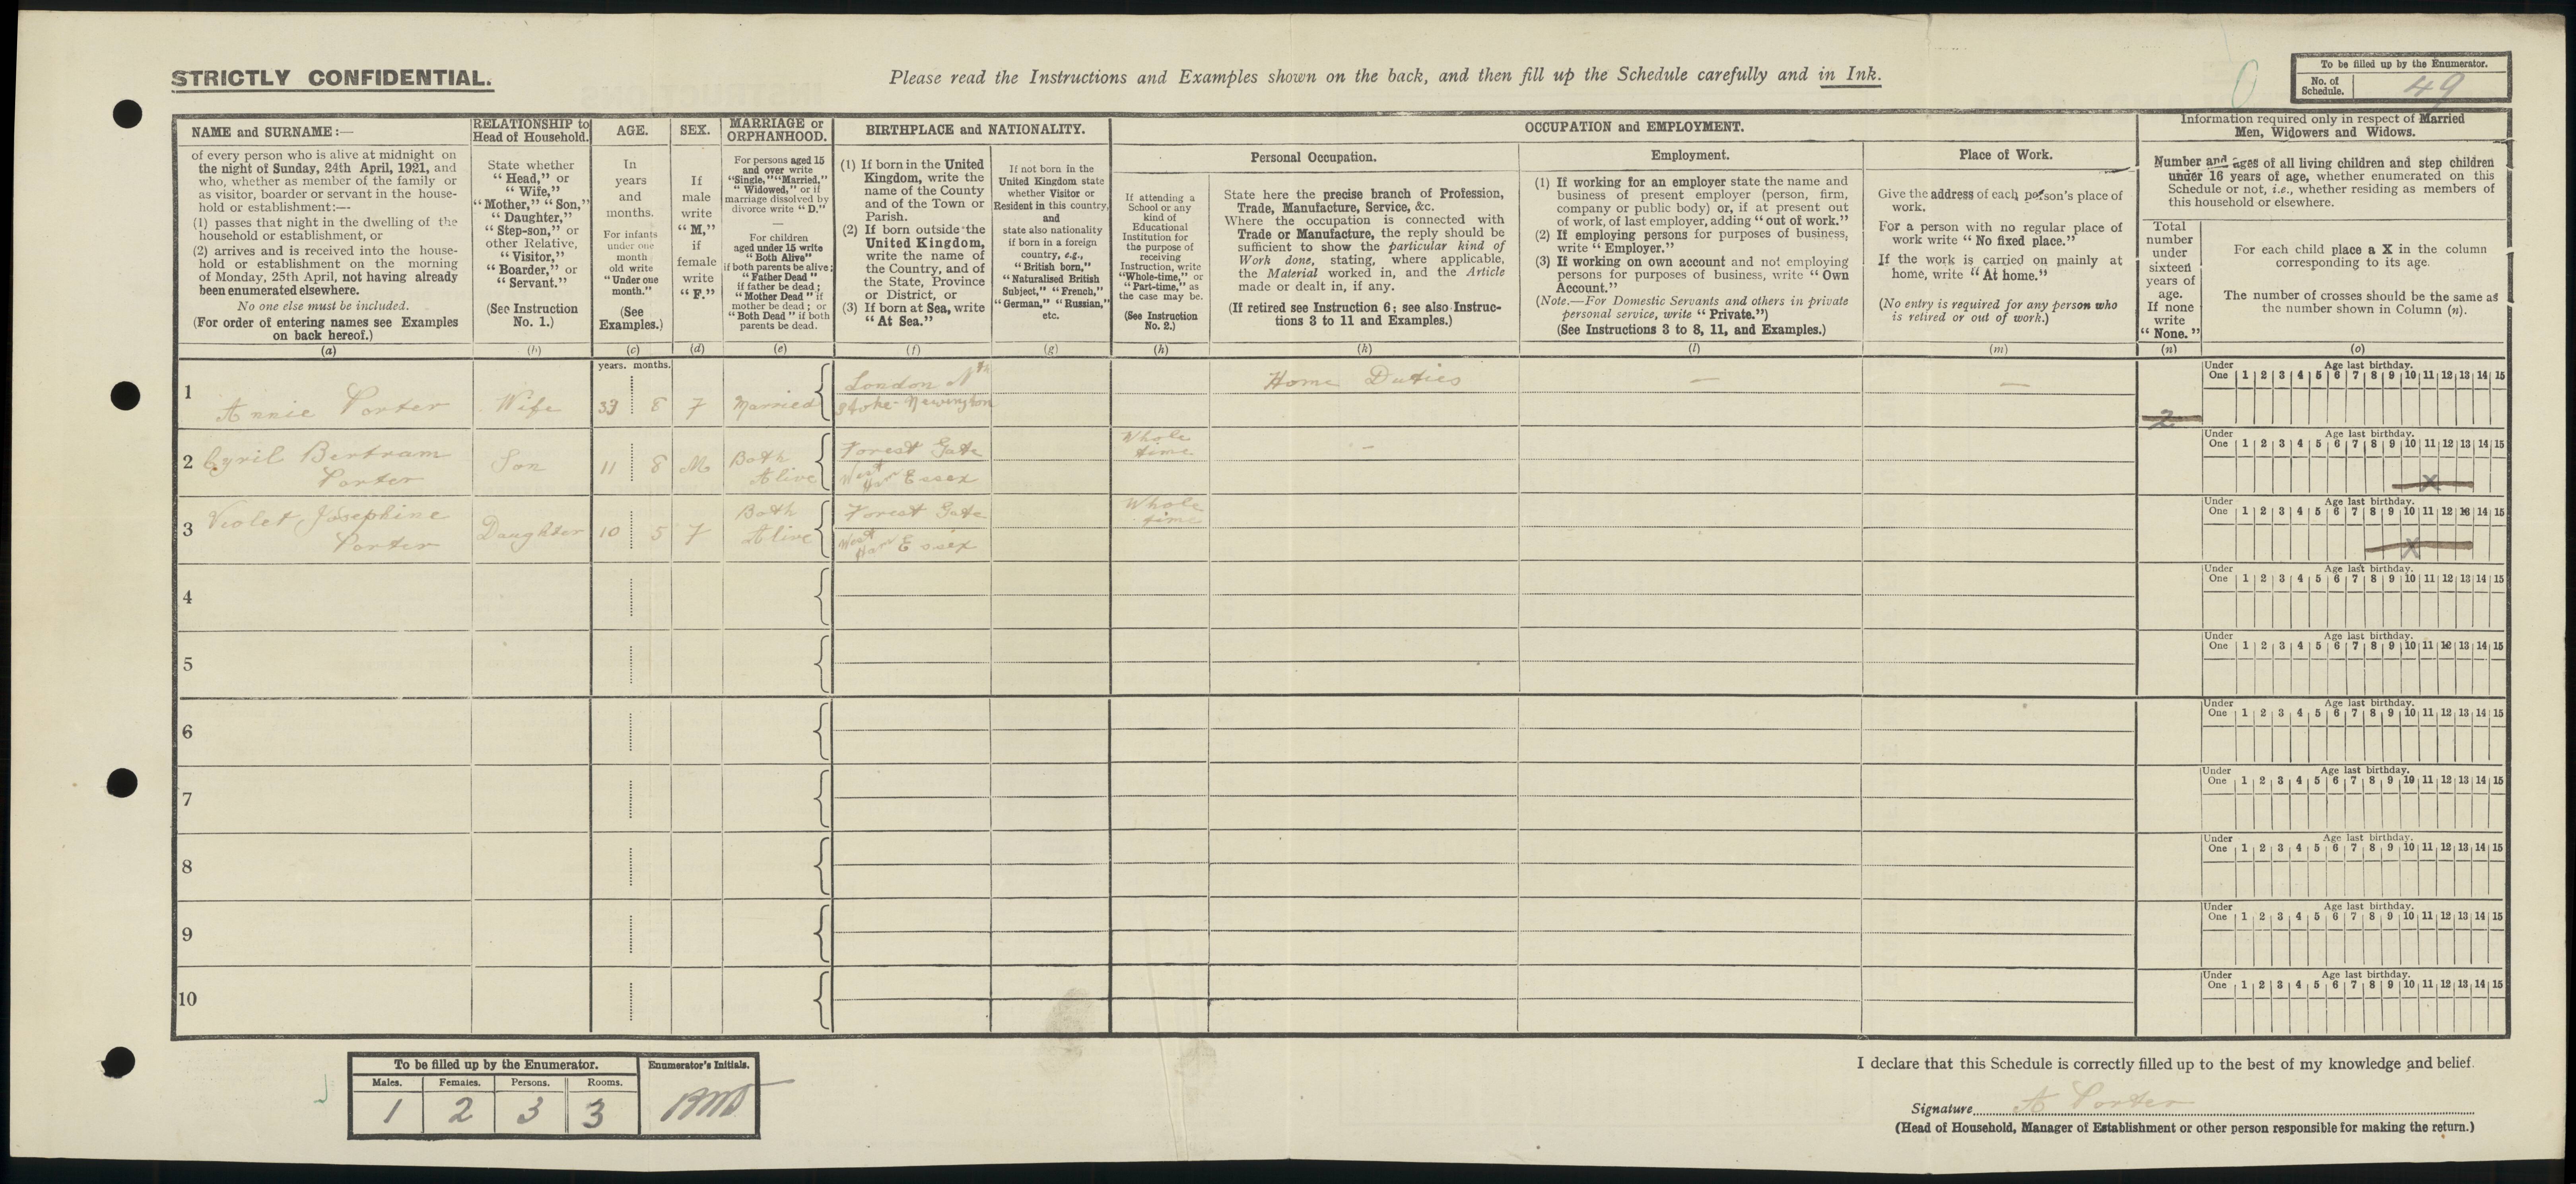 STRICTLY CONFIDENTIAL.
Please read the Instructions and Examples shown on the back, and then fill up the Schedule carefully and in Ink.
To be filled up by the Enumerator.
No. of Schedule. 49
NAME and SURNAME:—
of every person who is alive at midnight on
the night of Sunday, 24th April, 1921, and
who, whether as member of the family or
as visitor, boarder or servant in the house-
hold or establishment:—
(1) passes that night in the dwelling of the
household or establishment, or
(2) arrives and is received into the house-
hold or establishment on the morning
of Monday, 25th April, not having already
been enumerated elsewhere.
No one else must be included.
(For order of entering names see Examples
on back hereof.)
(a)
RELATIONSHIP to
Head of Household.
State whether
"Head," or
"Wife,"
"Mother," "Son,"
"Daughter,"
"Step-son," or
other Relative,
"Visitor,"
"Boarder," or
"Servant."
(See Instruction
No. 1.)
(b)
AGE.
In
years
and
months.
For infants
under one
month
old write
"Under one
month."
(See
Examples.)
(c)
SEX.
If
male
write
"M,"
if
female
write
"F."
(d)
MARRIAGE or
ORPHANHOOD.
For persons aged 15
and over write
"Single," "Married,"
"Widowed," or if
marriage dissolved by
divorce write "D."
—
For children
aged under 15 write
"Both Alive"
if both parents be alive;
"Father Dead"
if father be dead;
"Mother Dead" if
mother be dead; or
"Both Dead" if both
parents be dead.
(e)
BIRTHPLACE and NATIONALITY.
(1) If born in the United
Kingdom, write the
name of the County
and of the Town or
Parish.
(2) If born outside the
United Kingdom,
write the name of
the Country, and of
the State, Province
or District, or
(3) If born at Sea, write
"At Sea."
(f)
If not born in the
United Kingdom state
whether Visitor or
Resident in this country,
and
state also nationality
if born in a foreign
country, e.g.,
"British born,"
"Naturalised British
Subject," "French,"
"German," "Russian,"
etc.
(g)
OCCUPATION and EMPLOYMENT.
If attending a
School or any
kind of
Educational
Institution for
the purpose of
receiving
Instruction, write
"Whole-time," or
"Part-time," as
the case may be.
(See Instruction
No. 2.)
(h)
Personal Occupation.
State here the precise branch of Profession,
Trade, Manufacture, Service, &c.
Where the occupation is connected with
Trade or Manufacture, the reply should be
sufficient to show the particular kind of
Work done, stating, where applicable,
the Material worked in, and the Article
made or dealt in, if any.
(If retired see Instruction 6; see also Instruc-
tions 3 to 11 and Examples.)
(k)
Employment.
(1) If working for an employer state the name and
business of present employer (person, firm,
company or public body) or, if at present out
of work, of last employer, adding "out of work."
(2) If employing persons for purposes of business,
write "Employer."
(3) If working on own account and not employing
persons for purposes of business, write "Own
Account."
(Note.—For Domestic Servants and others in private
personal service, write "Private.")
(See Instructions 3 to 8, 11, and Examples.)
(l)
Place of Work.
Give the address of each person's place of
work.
For a person with no regular place of
work write "No fixed place."
If the work is carried on mainly at
home, write "At home."
(No entry is required for any person who
is retired or out of work.)
(m)
Information required only in respect of Married
Men, Widowers and Widows.
Number and ages of all living children and step children
under 16 years of age, whether enumerated on this
Schedule or not, i.e., whether residing as members of
this household or elsewhere.
Total
number
under
sixteen
years of
age.
If none
write
"None."
(n)
For each child place a X in the column
corresponding to its age.
The number of crosses should be the same as
the number shown in Column (n).
(o)
years. months.
1 Annie Porter Wife 33 8 F Married London Nth Home Duties — — 2
Stoke-Newington
Under One Age last birthday. 1 2 3 4 5 6 7 8 9 10 11 12 13 14 15
2 Cyril Bertram Porter Son 11 8 M Both Alive Forest Gate Whole time —
West Ham Essex
Under One Age last birthday. 1 2 3 4 5 6 7 8 9 10 11 12 13 14 15
X
3 Violet Josephine Porter Daughter 10 5 F Both Alive Forest Gate Whole time
West Ham Essex
Under One Age last birthday. 1 2 3 4 5 6 7 8 9 10 11 12 13 14 15
X
4
Under One Age last birthday. 1 2 3 4 5 6 7 8 9 10 11 12 13 14 15
5
Under One Age last birthday. 1 2 3 4 5 6 7 8 9 10 11 12 13 14 15
6
Under One Age last birthday. 1 2 3 4 5 6 7 8 9 10 11 12 13 14 15
7
Under One Age last birthday. 1 2 3 4 5 6 7 8 9 10 11 12 13 14 15
8
Under One Age last birthday. 1 2 3 4 5 6 7 8 9 10 11 12 13 14 15
9
Under One Age last birthday. 1 2 3 4 5 6 7 8 9 10 11 12 13 14 15
10
Under One Age last birthday. 1 2 3 4 5 6 7 8 9 10 11 12 13 14 15
To be filled up by the Enumerator.
Males. Females. Persons. Rooms.
1 2 3 3
Enumerator's Initials.
I declare that this Schedule is correctly filled up to the best of my knowledge and belief.
Signature A Porter
(Head of Household, Manager of Establishment or other person responsible for making the return.)